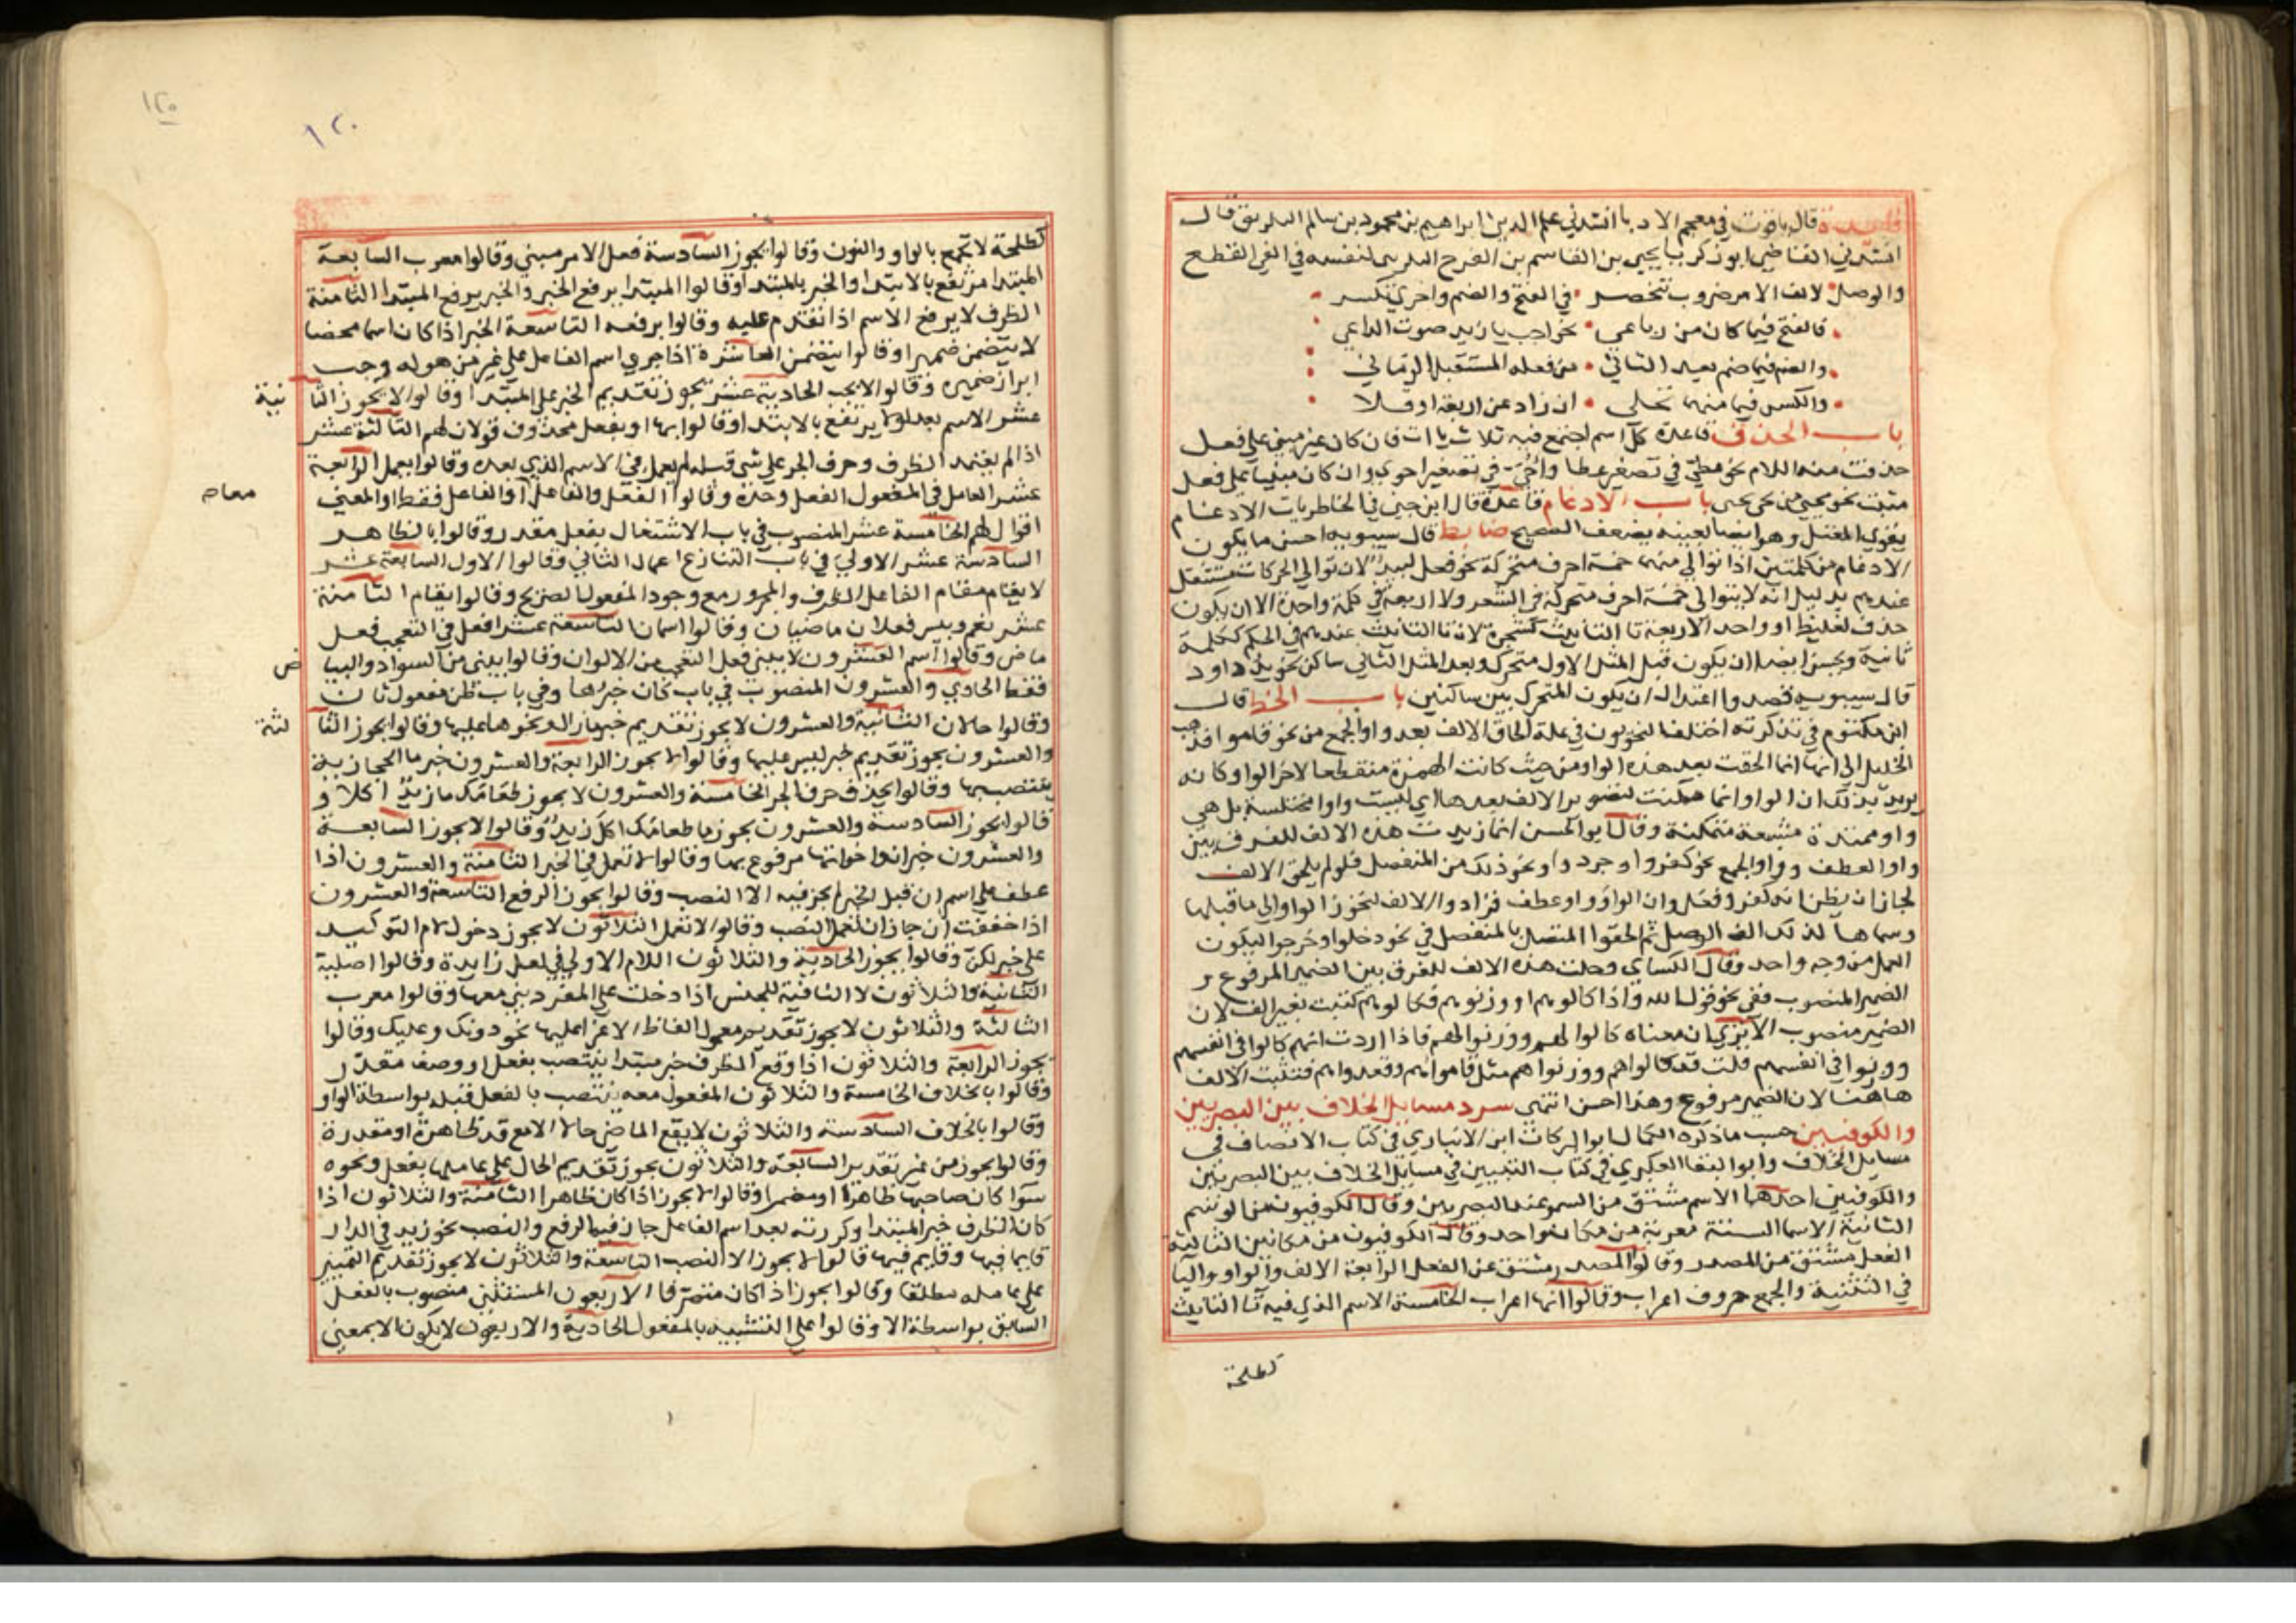 فائدة قال ياقوت في معجم الادبا انشدني علم الدين ابراهيم بن محمود بن سالم التكريتي قال
انشدني القاضي ابو زكريا يحيى بن القاسم بن المفرج التكريتي لنفسه في الفي القطع
والوصل لالف الامر ضروب تنحصر في الفتح والضم واخرى تنكسر
فالفتح فيما كان من رباعي نحو اجب يا زيد صوت الداعي
والضم فيما ضم بعيد الثاني من فعله المستقبل الزماني
والكسر فيما منهما تخلى ان زاد عن اربعة او قلا
باب الحذف قاعدة كل اسم اجتمع فيه ثلاث يات فان كان غير مبني على فعل
حذفت منه اللام نحو عطي في تصغير عطا واحي في تصغير احوى وان كان مبنيا على فعل
ثبتت نحو محيي من حيى يحيى باب الادغام قاعدة قال ابن جني في الخاطريات الادغام
يقوي المعتل وهو ايضا بعينه يضعف الصحيح ضابط قال سيبويه احسن ما يكون
الادغام من كلمتين اذا توالى منهما خمسة احرف متحركة نحو فعل لبيد لان توالي الحركات مستثقل
عندهم بدليل انه لا يتوالى خمسة احرف متحركة في الشعر ولا اربعة في كلمة واحدة الا ان يكون
حذف لغليظ او واحد الاربعة تا التانيث كشجرة لان تا التانيث عندهم في الحكم ككلمة
ثانية ويحسن ايضا ان يكون قبل المثل الاول متحرك وبعد المثل الثاني ساكن نحو يد داود
قال سيبويه قصدوا اعتدالا ان يكون المتحرك بين ساكنين باب الخط قال
ابن مكتوم في تذكرته اختلف النحويون في علة الحاق الالف بعد واو الجمع من نحو قاموا فذهب
الخليل الى انها انما الحقت بعد هذه الواو من حيث كانت الهمزة منقطعا لاخر الواو وكانه
يريد بذلك ان الواو انما مكنت لتصوير الالف بعدها اي ليست واوا مختلسة بل هي
واو ممتدة مشبعة متمكنة وقال ابو الحسن انما زيدت هذه الالف للفرق بين
واو العطف وواو الجمع نحو كفروا وجردوا ونحو ذلك من المنفصل فلو لم يلحق الالف
لجاز ان يظن انه كفر وفعل وان الواو واو عطف فزادوا الالف لتحوز الواو الى ما قبلها
وسماها لذلك الف الوصل ثم الحقوا المتصل بالمنفصل في نحو دخلوا وخرجوا ليكون
العمل من وجه واحد وقال الكساي دخلت هذه الالف للفرق بين الضمير المرفوع و
الضمير المنصوب ففي نحو قول الله واذا كالوهم او وزنوهم فكالوهم كتبت بغير الف لان
الضمير منصوب الا ترى ان معناه كالوا لهم ووزنوا لهم فاذا اردت انهم كالوا في انفسهم
ووزنوا في انفسهم قلت قد كالوا هم ووزنوا هم مثل قاموا هم وقعدوا هم فتثبت الالف
هاهنا لان الضمير مرفوع وهذا احسن انتهى سرد مسايل الخلاف بين البصريين
والكوفيين حسب ما ذكره الكمال ابو البركات ابن الانباري في كتاب الانصاف في
مسايل الخلاف وابو البقا العكبري في كتاب التبيين في مسايل الخلاف بين البصريين
والكوفيين احدها الاسم مشتق من السمو عند البصريين وقال الكوفيون من الوسم
الثانية الاسما الستة معربة من مكان واحد وقال الكوفيون من مكانين الثالثة
الفعل مشتق من المصدر وقالوا المصدر مشتق من الفعل الرابعة الالف والواو واليا
في التثنية والجمع حروف اعراب وقالوا انها اعراب الخامسة الاسم الذي فيه تا التانيث
كطلحة
١٢٠
١٢٠
كطلحة لا يجمع بالواو والنون وقالوا يجوز السادسة فعل الامر مبني وقالوا معرب السابعة
المبتدا مرتفع بالابتدا والخبر بالمبتدا وقالوا المبتدا يرفع الخبر والخبر يرفع المبتدا الثامنة
الظرف لا يرفع الاسم اذا تقدم عليه وقالوا يرفعه التاسعة الخبر اذا كان اسما محضا
لا يتضمن ضميرا وقالوا يتضمن العاشرة اذا جرى اسم الفاعل على غير من هو له وجب
ابراز ضميره وقالوا لا يجب الحادية عشر يجوز تقديم الخبر على المبتدا وقالوا لا يجوز الثا نية
عشر الاسم بعد لولا يرتفع بالابتدا وقالوا بها او بفعل محذوف قولان لهم الثالثة عشر
اذا لم يعتمد الظرف وحرف الجر على شي قبله لم يعمل في الاسم الذي بعده وقالوا يعمل الرابعة
عشر العامل في المفعول الفعل وحده وقالوا الفعل والفاعل او الفاعل فقط او المعنى معاه
اقوال لهم الخامسة عشر المنصوب في باب الاشتغال بفعل مقدر وقالوا بالظاهر
السادسة عشر الاولى في باب التنازع اعمال الثاني وقالوا الاول السابعة عشر
لا يقام مقام الفاعل الظرف والمجرور مع وجود المفعول الصريح وقالوا يقام الثامنة
عشر نعم وبيس فعلان ماضيان وقالوا اسمان التاسعة عشر افعل في التعجب فعل
ماض وقالوا اسم العشرون لا يبنى فعل التعجب من الالوان وقالوا يبنى من السواد والبيا ض
فقط الحادي والعشرون المنصوب في باب كان خبرها وفي باب ظن مفعول ثان
وقالوا حالان الثانية والعشرون لا يجوز تقديم خبر ما زال ونحوها عليها وقالوا يجوز الثا لثة
والعشرون يجوز تقديم خبر ليس عليها وقالوا لا يجوز الرابعة والعشرون خبر ما الحجازية
ينتصب بها وقالوا بحذف حرف الجر الخامسة والعشرون لا يجوز طعامك ما زيد اكلا و
قالوا يجوز السادسة والعشرون يجوز ما طعامك اكل زيد وقالوا لا يجوز السابعة
والعشرون خبر ان واخواتها مرفوع بها وقالوا لا تعمل في الخبر الثامنة والعشرون اذا
عطف على اسم ان قبل الخبر لم يجز فيه الا النصب وقالوا يجوز الرفع التاسعة والعشرون
اذا خففت ان جاز ان تعمل النصب وقالوا لا تعمل الثلاثون لا يجوز دخول لام التوكيد
على خبر لكن وقالوا يجوز الحادية والثلاثون اللام الاولى في لعل زايدة وقالوا اصلية
الثانية والثلاثون لا النافية للجنس اذا دخلت على المفرد بني معها وقالوا معرب
الثالثة والثلاثون لا يجوز تقديم معمول الفاظ الاغرا عليها نحو دونك وعليك وقالوا
يجوز الرابعة والثلاثون اذا وقع الظرف خبر مبتدا ينتصب بفعل او وصف مقدر
وقالوا بالخلاف الخامسة والثلاثون المفعول معه ينتصب بالفعل قبله بواسطة الواو
وقالوا بالخلاف السادسة والثلاثون لا يقع الماضي حالا الا مع قد ظاهرة او مقدرة
وقالوا يجوز من غير تقدير السابعة والثلاثون يجوز تقديم الحال على عاملها بفعل ونحوه
سوا كان صاحبها ظاهرا او مضمرا وقالوا لا يجوز اذا كان ظاهرا الثامنة والثلاثون اذا
كان الظرف خبر المبتدا وكررته بعد اسم الفاعل جاز فيه الرفع والنصب نحو زيد في الدار
قايما فيها وقايم فيها قالوا لا يجوز الا النصب التاسعة والثلاثون لا يجوز تقديم التمييز
على عامله مطلقا وقالوا يجوز اذا كان متصرفا الاربعون المستثنى منصوب بالفعل
السابق بواسطة الا وقالوا على التشبيه بالمفعول الحادية والاربعون لا يكون الا بمعنى